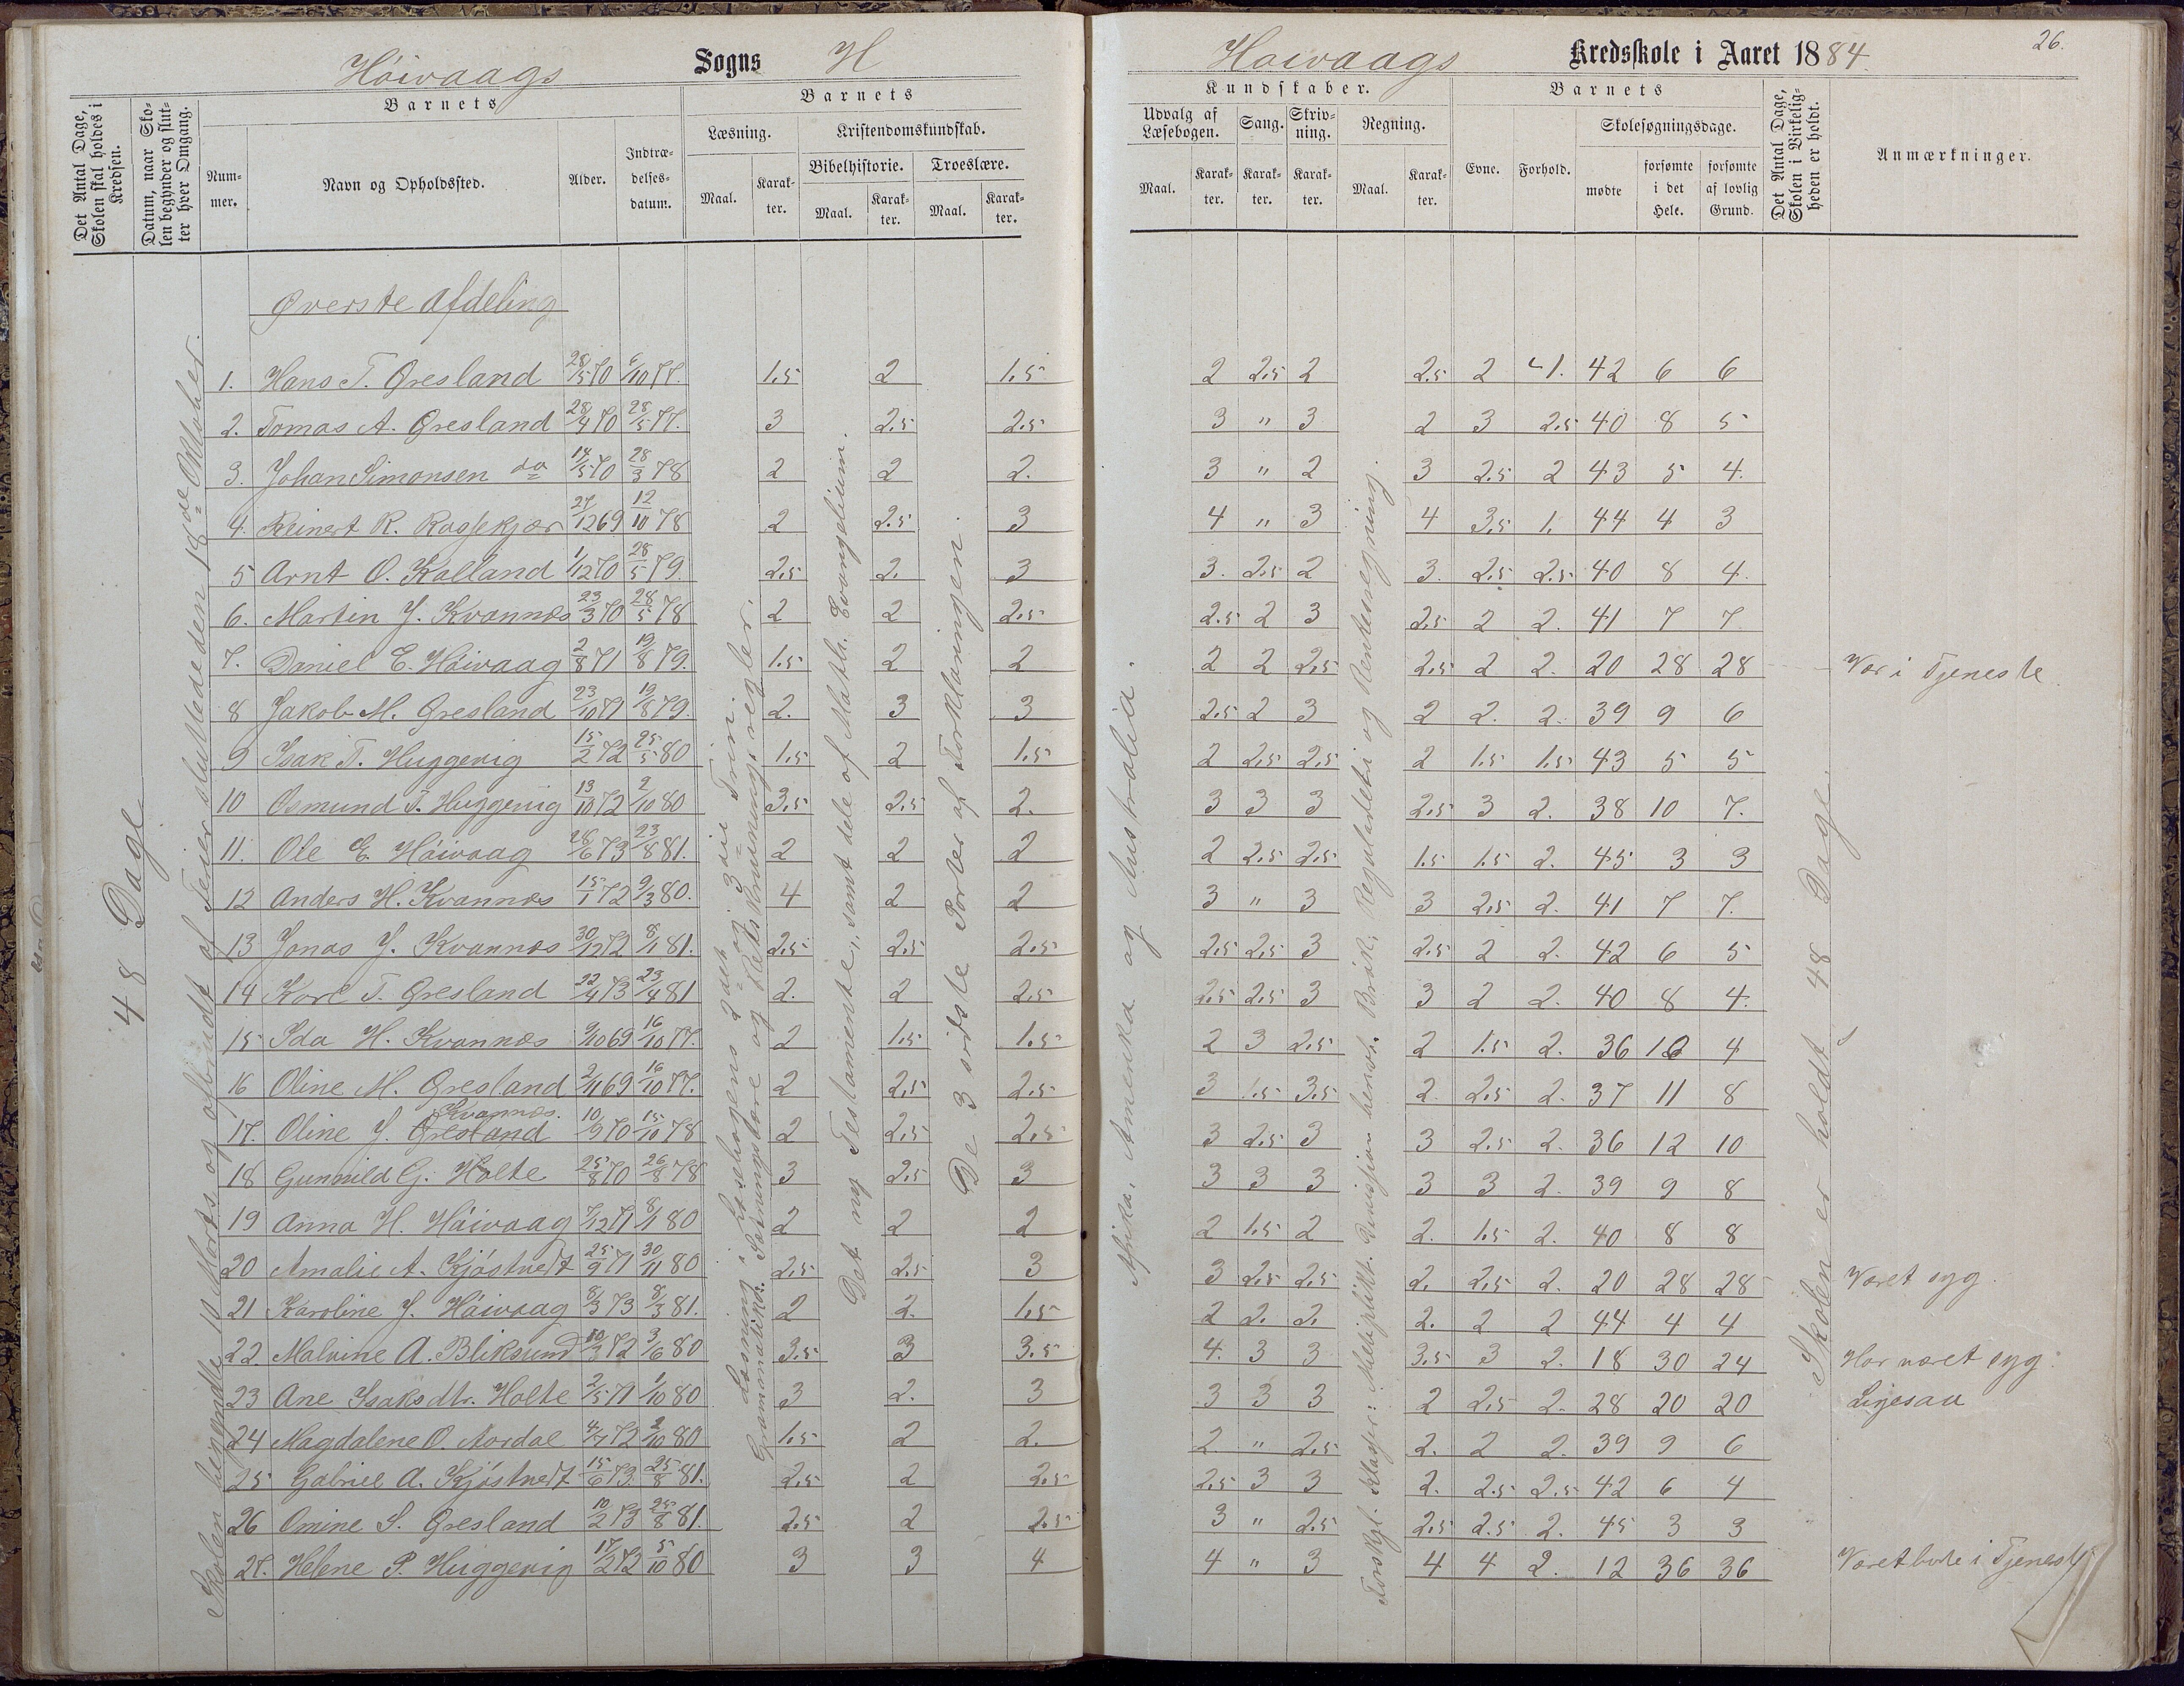 Høivaags Sogns H
Høivaags Kredsskole i Aaret 1884. 26.
Det Antal Dage, Skolen skal holdes i Kredsen.
Datum, naar Skolen begynder og slutter hver Omgang.
Barnets
Nummer.
Navn og Opholdssted.
Alder.
Indtrædelsesdatum.
Barnets
Læsning.
Maal.
Karakter.
Kristendomskundskab.
Bibelhistorie.
Maal.
Karakter.
Troeslære.
Maal.
Karakter.
Kundskaber.
Udvalg af Læsebogen.
Maal.
Karakter.
Sang.
Karakter.
Skrivning.
Karakter.
Regning.
Maal.
Karakter.
Barnets
Evne.
Forhold.
Skolesøgningsdage.
mødte
forsømte i det Hele.
forsømte af lovlig Grund.
Det Antal Dage, Skolen i Virkeligheden er holdt.
Anmærkninger.
48 Dage
Skolen begyndte 10 Marts og afbrudt af Ferier sluttede den 18de Oktober.
Øverste Afdeling
Læsning i Læsebogens 2det og 3die Trin.
Grammatikk. Sætningslære og Retskrivningsregler.
Det ny Testamente, samt dele af Matth. Evangelium.
De 3 sidste Parter af Forklaringen.
Afrika, Amerika og Australia.
Forskjl. Klasser: Multiplikt. Division hensøb. Brøk, Regulardetri og Rentesregning.
Skolen er holdt 48 Dage.
1. Hans T. Øresland 28/5 70 6/10 77. 1.5 2 1.5 2 2.5 2 2.5 2 1. 42 6 6
2. Tomas A. Øresland 28/4 70 28/5 77. 3 2.5 2.5 3 " 3 2 3 2.5 40 8 5
3. Johan Simonsen do 14/5 70 28/3 78 2 2 2. 3 " 2 3 2.5 2 43 5 4.
4. Reinert R. Rassekjær 27/12 69 12/10 78 2 2.5 3 4 " 3 4 3.5 1. 44 4 3
5 Arnt O. Kalland 1/12 70 28/5 79. 2.5 2. 3 3. 2.5 2 3. 2.5 2.5 40 8 4.
6. Martin J. Kvannes 23/3 70 28/5 78 2 2 2.5 2.5 2 3 2.5 2 2. 41 7 7
7. Daniel E. Høivaag 2/8 71 19/8 79. 1.5 2 2 2 2 2.5 2.5 2 2. 20 28 28 Vær i Tjeneste
8 Jakob M. Øresland 23/10 71 19/8 79. 2. 3 3 2.5 2 3 2 2. 2. 39 9 6
9 Isak T. Huggevig 15/2 72 25/5 80 1.5 2 1.5 2 2.5 2.5 2 1.5 1.5 43 5 5
10 Osmund T. Huggevig 13/10 72 2/10 80 3.5 2.5 2. 3 3 3 2.5 3 2. 38 10 7.
11. Ole E. Høivaag 26/6 73 23/8 81. 2 2 2 2 2.5 2.5 1.5 1.5 2. 45 3 3
12 Anders H. Kvannes 15/1 72 9/3 80. 4 2 2 3 " 3 3 2.5 2. 41 7 7.
13 Jonas J. Kvannes 30/12 72 8/1 81. 2.5 2.5 2.5 2.5 2.5 3 2.5 2 2. 42 6 5
14 Karl T. Øresland 22/4 73 23/4 81 2. 2 2.5 2.5 2.5 3 3 2 2. 40 8 4.
15 Ida H. Kvannes 9/10 69 16/10 77. 2 1.5 1.5 2 3 2.5 2 1.5 2. 36 12 4
16 Oline M. Øresland 2/11 69 16/10 77. 2 2.5 2.5 3 1.5 3.5 2. 2.5 2. 37 11 8
17. Oline J. Øresland Kvannes. 10/9 70 15/10 78 2 2.5 2.5 3 2.5 3 3 2.5 2. 36 12 10
18 Gunnild G. Holte 25/8 70 26/8 78 3 2.5 3 3 3 3 3 3 2. 39 9 8
19 Anna H. Høivaag 7/12 71 8/1 80 2 2 2 2 1.5 2 2. 1.5 2. 40 8 8
20 Amalie A. Kjøstvedt 25/9 71 30/11 80 2.5 2.5 3 3 2.5 2.5 2. 2.5 2. 20 28 28 Været syg
21 Karoline J. Høivaag 8/3 73 8/3 81. 2 2. 1.5 2 2. 2. 2. 2 2 44 4 4
22. Malvine A. Bliksund 10/3 72 3/6 80 3.5 3 3.5 4. 3 3 3.5 3 2. 18 30 24 Har været syg
23 Ane Isaksdtr. Holte 2/5 71 1/10 80 3 2. 3 3 3 3 2 2.5 2. 28 20 20 Ligesaa
24 Magdalene O. Aardal 4/7 72 2/10 80 1.5 2 2. 2. " 2.5 2. 2 2. 39 9 6
25 Gabriel A. Kjøstvedt 15/6 73. 25/8 81. 2.5 2 2.5 2.5 3 3 2. 2.5 2.5 42 6 4
26 Omine S. Øresland 10/2 73 25/8 81. 2.5 2 2.5 3 " 2.5 2.5 2.5 2. 45 3 3
27. Helene P. Huggevig 17/2 72 5/10 80 3 3 4 4 " 3 4 4 2. 12 36 36 Været borte i Tjeneste